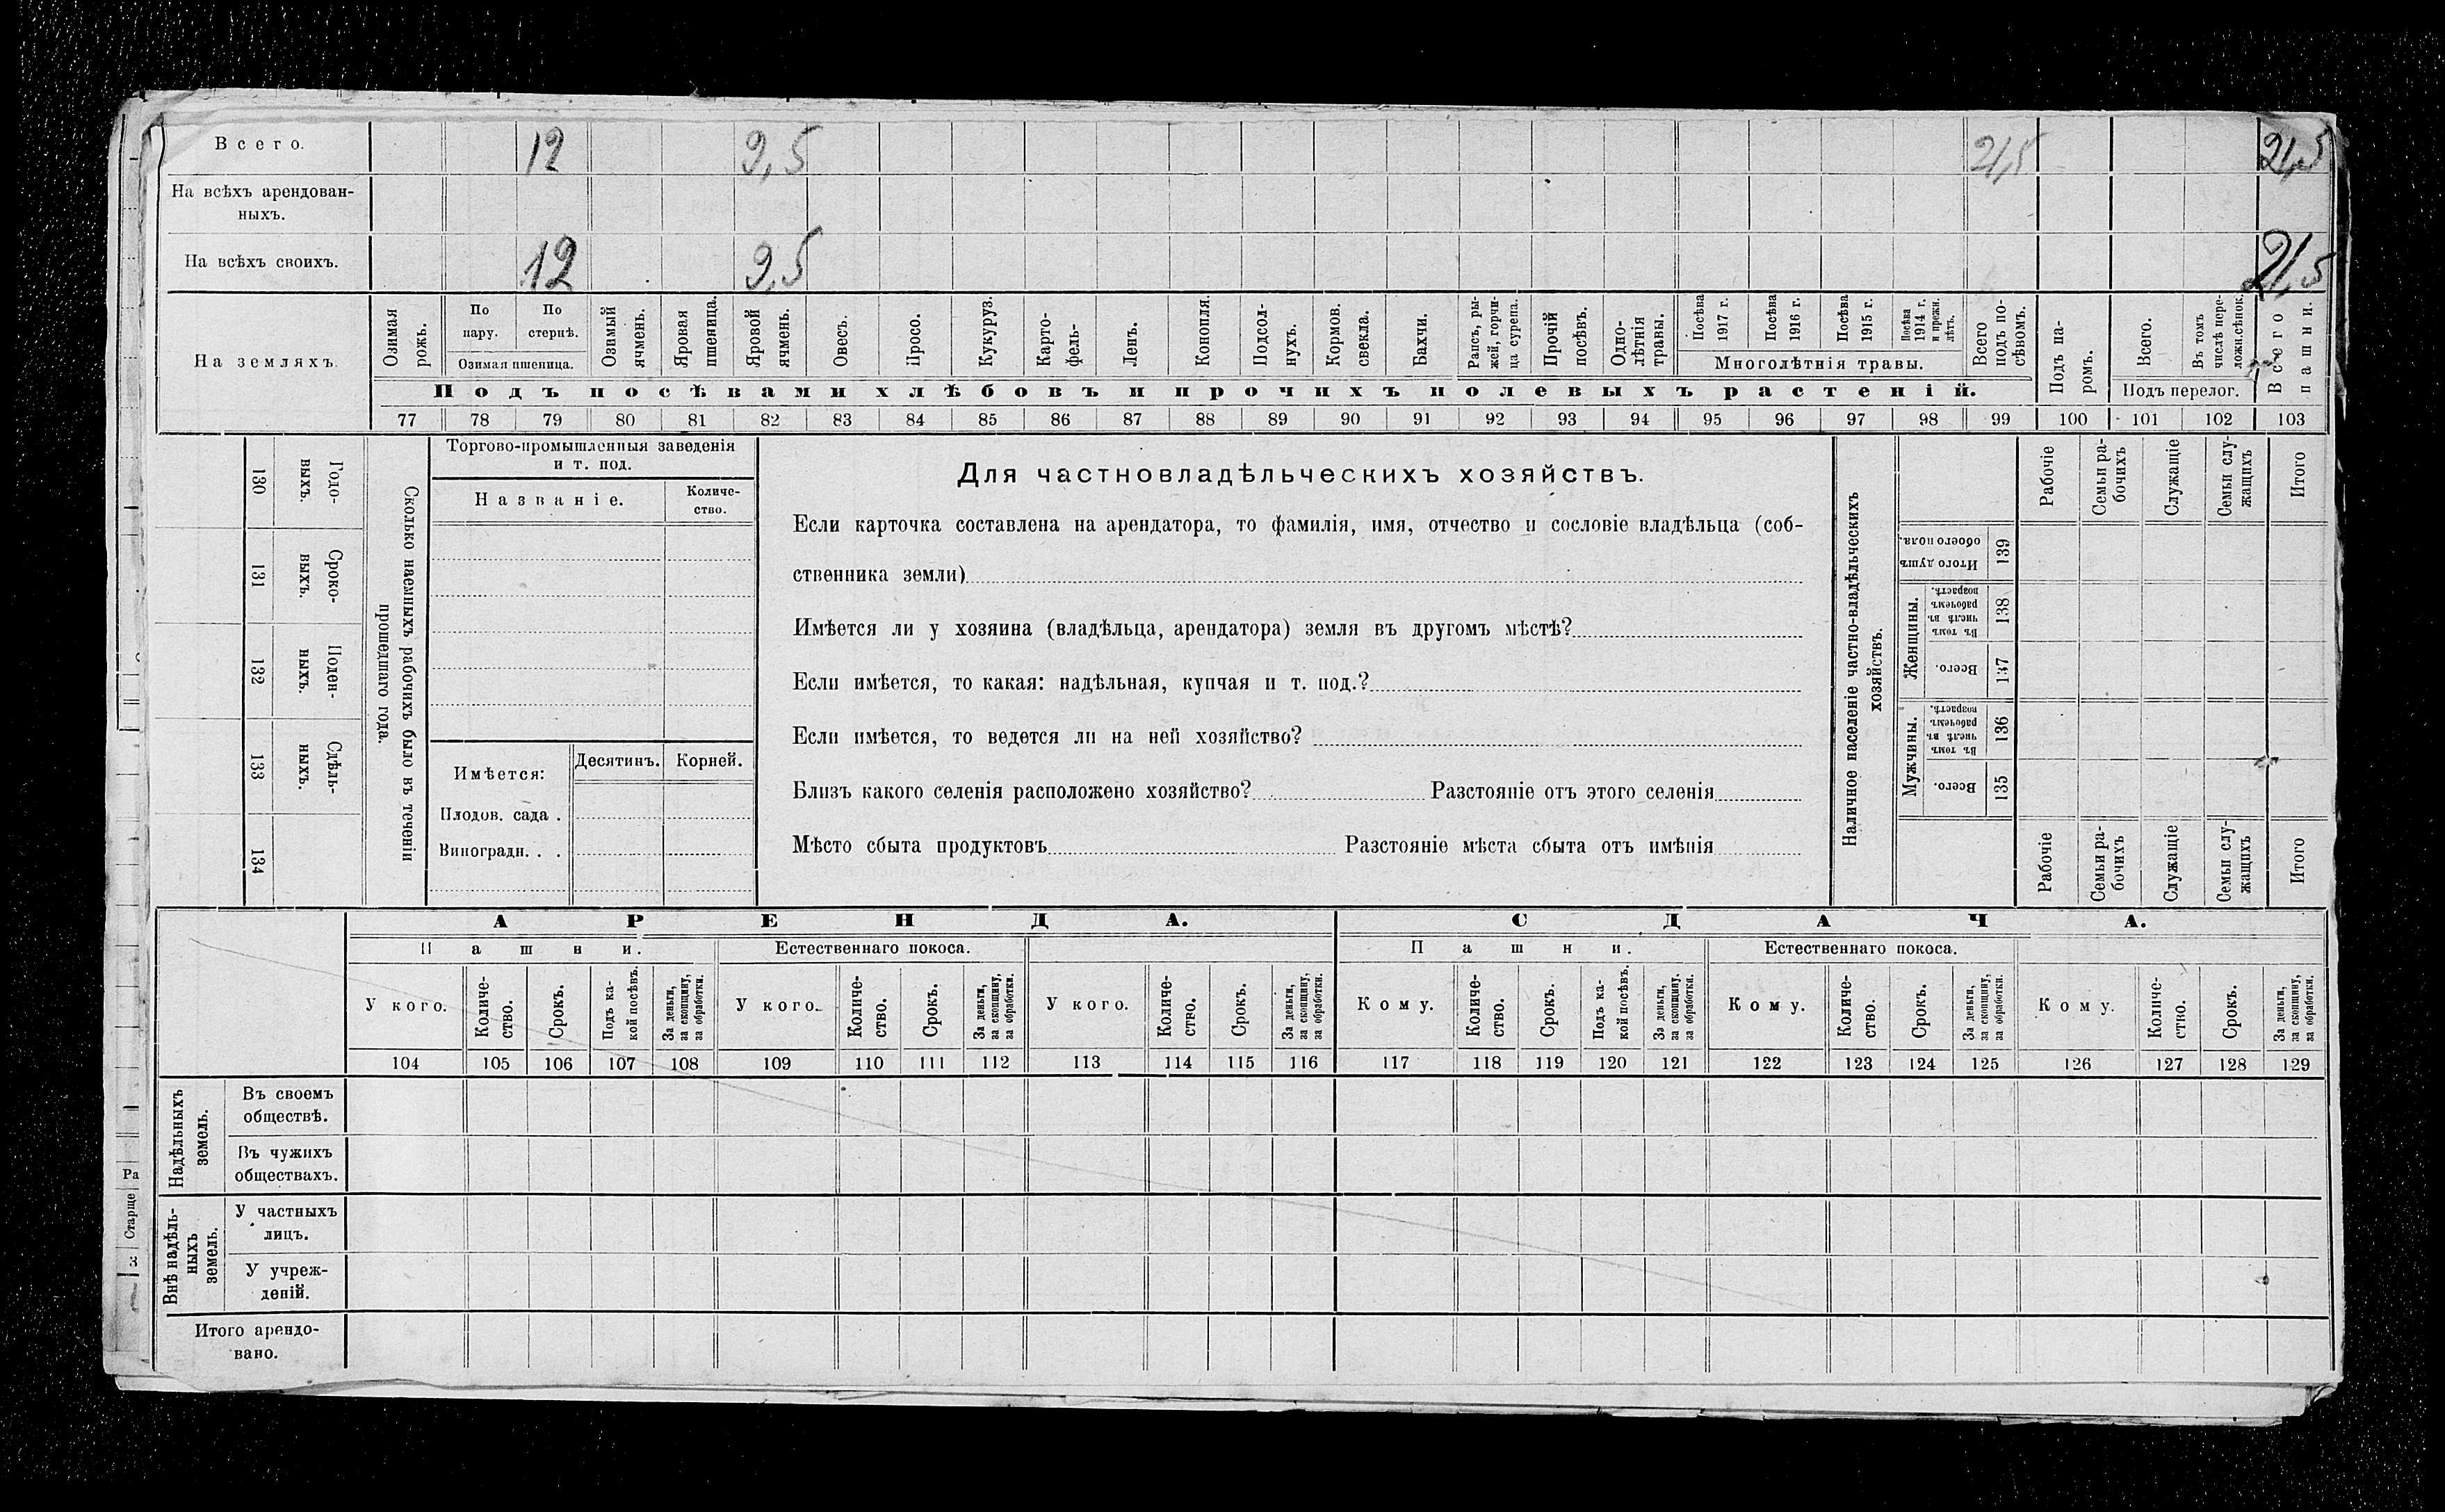 Всего. 12 9,5 21,5 21,5
На всѣхъ арендован-
ныхъ.
На всѣхъ своихъ. 12 9,5 21,5
На земляхъ.
Озимая
рожь.
По
пару.
По
стернѣ.
Озимая пшеница.
Озимый
ячмень.
Яровая
пшеница.
Яровой
ячмень.
Овесъ.
Просо.
Кукуруз.
Карто-
фель-
Ленъ.
Конопля.
Подсол-
нухъ.
Кормов.
свекла.
Бахчи.
Рапсъ, ры-
жей, горчи-
ца сурепа.
Прочій
посѣвъ.
Одно-
лѣтнія
травы.
Посѣва
1917 г.
Посѣва
1916 г.
Посѣва
1915 г.
Посѣва
1914 г.
и прежн.
лѣтъ.
Многолѣтнія травы.
Всего
подъ по-
сѣвомъ.
Подъ па-
ромъ.
Всего.
Въ томъ
числѣ пере-
ложн.сѣнок.
Подъ перелог.
Всего
пашни.
Подъ посѣвами хлѣбовъ и прочихъ полевыхъ растеній.
77 78 79 80 81 82 83 84 85 86 87 88 89 90 91 92 93 94 95 96 97 98 99 100 101 102 103
130
Годо-
выхъ.
131
Сроко-
ныхъ.
132
Поден-
ныхъ.
133
Сдѣль-
ныхъ.
134
Сколько наемныхъ рабочихъ было въ теченіи
прошедшаго года.
Торгово-промышленныя заведенія
и т. под.
Названіе.
Количе-
ство.
Имѣется:
Десятинъ. Корней.
Плодов. сада .
Виноградн. . .
Для частновладѣльческихъ хозяйствъ.
Если карточка составлена на арендатора, то фамилія, имя, отчество и сословіе владѣльца (соб-
ственника земли)
Имѣется ли у хозяина (владѣльца, арендатора) земля въ другомъ мѣстѣ?
Если имѣется, то какая: надѣльная, купчая и т. под.?
Если имѣется, то ведется ли на ней хозяйство?
Близъ какого селенія расположено хозяйство? Разстояніе отъ этого селенія
Мѣсто сбыта продуктовъ Разстояніе мѣста сбыта отъ имѣнія
Наличное населеніе частно-владѣльческихъ
хозяйствъ.
Рабочіе
Семьи ра-
бочихъ
Служащіе
Семьи слу-
жащихъ
Итого
Итого душъ
обоего пола.
139
Женщины.
Въ томъ
числѣ въ
рабочемъ
возрастѣ.
138
Всего.
137
Мужчины.
Въ томъ
числѣ въ
рабочемъ
возрастѣ.
136
Всего.
135
Рабочіе
Семьи ра-
бочихъ
Служащіе
Семьи слу-
жащихъ
Итого
АРЕНДА. СДАЧА.
Пашни. Естественнаго покоса. Пашни. Естественнаго покоса.
У кого.
Количе-
ство.
Срокъ.
Подъ ка-
кой посѣвъ.
За деньги,
за скопщину,
за обработки.
У кого.
Количе-
ство.
Срокъ.
За деньги,
за скопщину,
за обработки.
У кого.
Количе-
ство.
Срокъ.
За деньги,
за скопщину,
за обработки.
Кому.
Количе-
ство.
Срокъ.
Подъ ка-
кой посѣвъ.
За деньги,
за скопщину,
за обработки.
Кому.
Количе-
ство.
Срокъ.
За деньги,
за скопщину,
за обработки.
Кому.
Количе-
ство.
Срокъ.
За деньги,
за скопщину,
за обработки.
104 105 106 107 108 109 110 111 112 113 114 115 116 117 118 119 120 121 122 123 124 125 126 127 128 129
Надѣльныхъ
земель.
Въ своемъ
обществѣ.
Въ чужихъ
обществахъ.
Внѣ надѣль-
ныхъ
земель.
У частныхъ
лицъ.
У учреж-
деній.
Итого арендо-
вано.
Ра
Старше